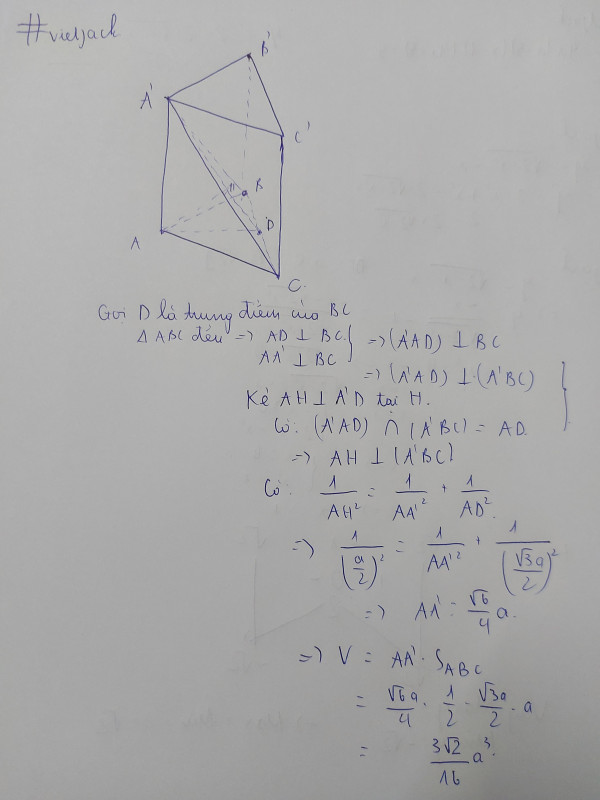 #vietjack
B'
A'
C'
H
B
A
D
C
Gọi D là trung điểm của BC
Δ ABC đều => AD ⊥ BC } => (A'AD) ⊥ BC
AA' ⊥ BC
=> (A'AD) ⊥ (A'BC) }
Kẻ AH ⊥ A'D tại H.
Có: (A'AD) ∩ (A'BC) = AD.
=> AH ⊥ (A'BC)
Có: 1/AH² = 1/AA'² + 1/AD².
=> 1/(a/2)² = 1/AA'² + 1/(√3a/2)²
=> AA' = √6/4 a.
=> V = AA' . S_ABC
= √6a/4 . 1/2 . √3a/2 . a
= 3√2/16 a³.